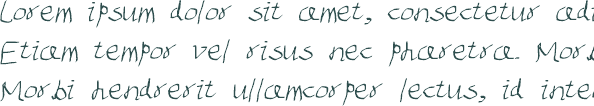 Lorem ipsum dolor sit amet, consectetur adi
Etiam tempor vel risus nec pharetra. Morb
Morbi hendrerit ullamcorper lectus, id inte